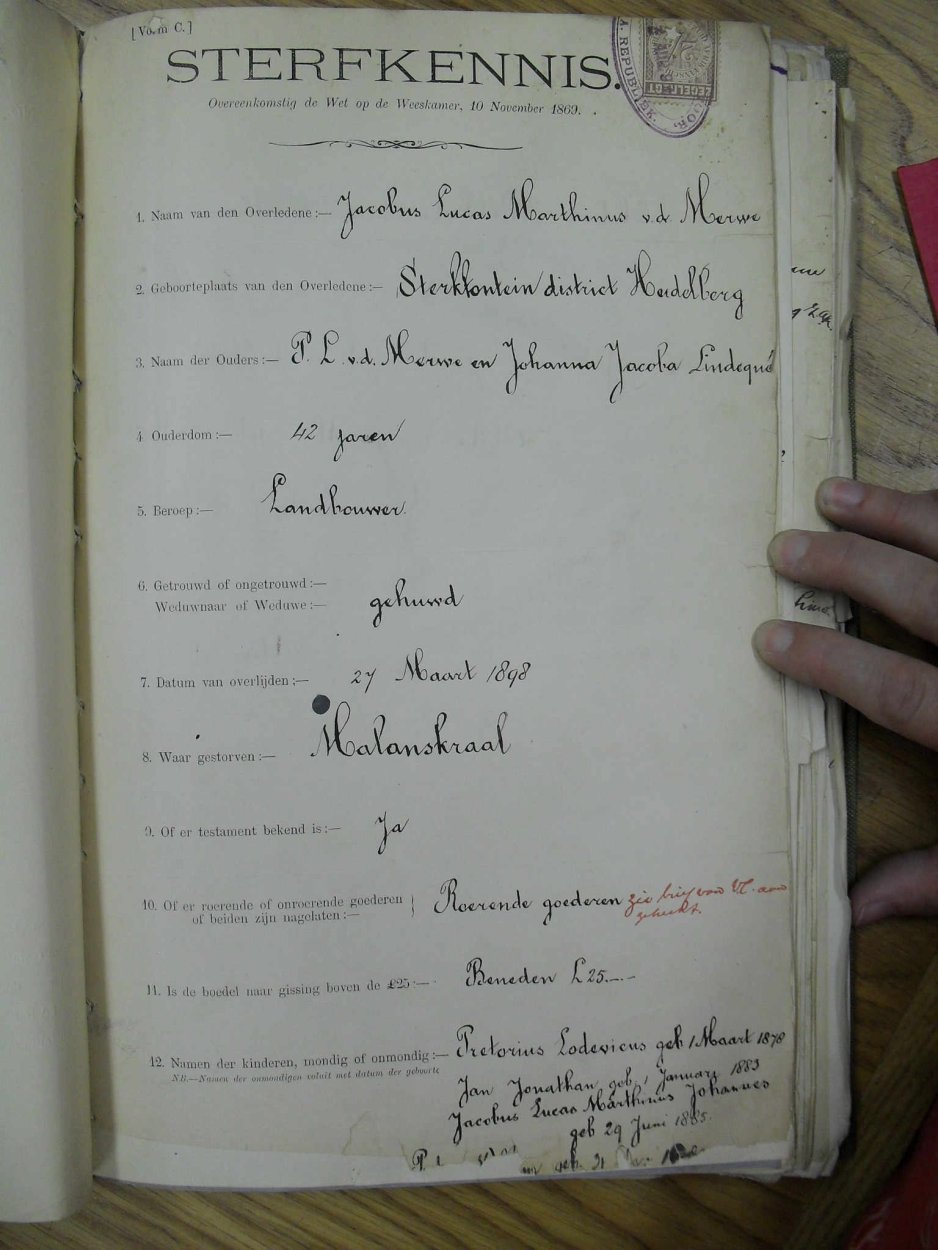 [Vorm C.]
STERFKENNIS.
Overeenkomstig de Wet op de Weeskamer, 10 November 1869.
ZEGELREGT
REPUBLIEK.
1. Naam van den Overledene:— Jacobus Lucas Marthinus v.d. Merwe
2. Geboorteplaats van den Overledene:— Sterkfontein district Heidelberg
3. Naam der Ouders:— P. L. v.d. Merwe en Johanna Jacoba Lindequé
4. Ouderdom:— 42 jaren
5. Beroep:— Landbouwer.
6. Getrouwd of ongetrouwd:—
Weduwnaar of Weduwe:— gehuwd
7. Datum van overlijden:— 27 Maart 1898
8. Waar gestorven:— Malanskraal
9. Of er testament bekend is:— Ja
10. Of er roerende of onroerende goederen
of beiden zijn nagelaten:— Roerende goederen zie brief van aan
gehecht.
11. Is de boedel naar gissing boven de £25:— Beneden £25.—
12. Namen der kinderen, mondig of onmondig:— Pretorius Lodevicus geb 1 Maart 1878
NB.—Namen der onmondigen voluit met datum der geboorte
Jan Jonathan geb. 1 Januari 1883
Jacobus Lucas Marthinus Johannes
geb 29 Juni 1885.
geb. 21